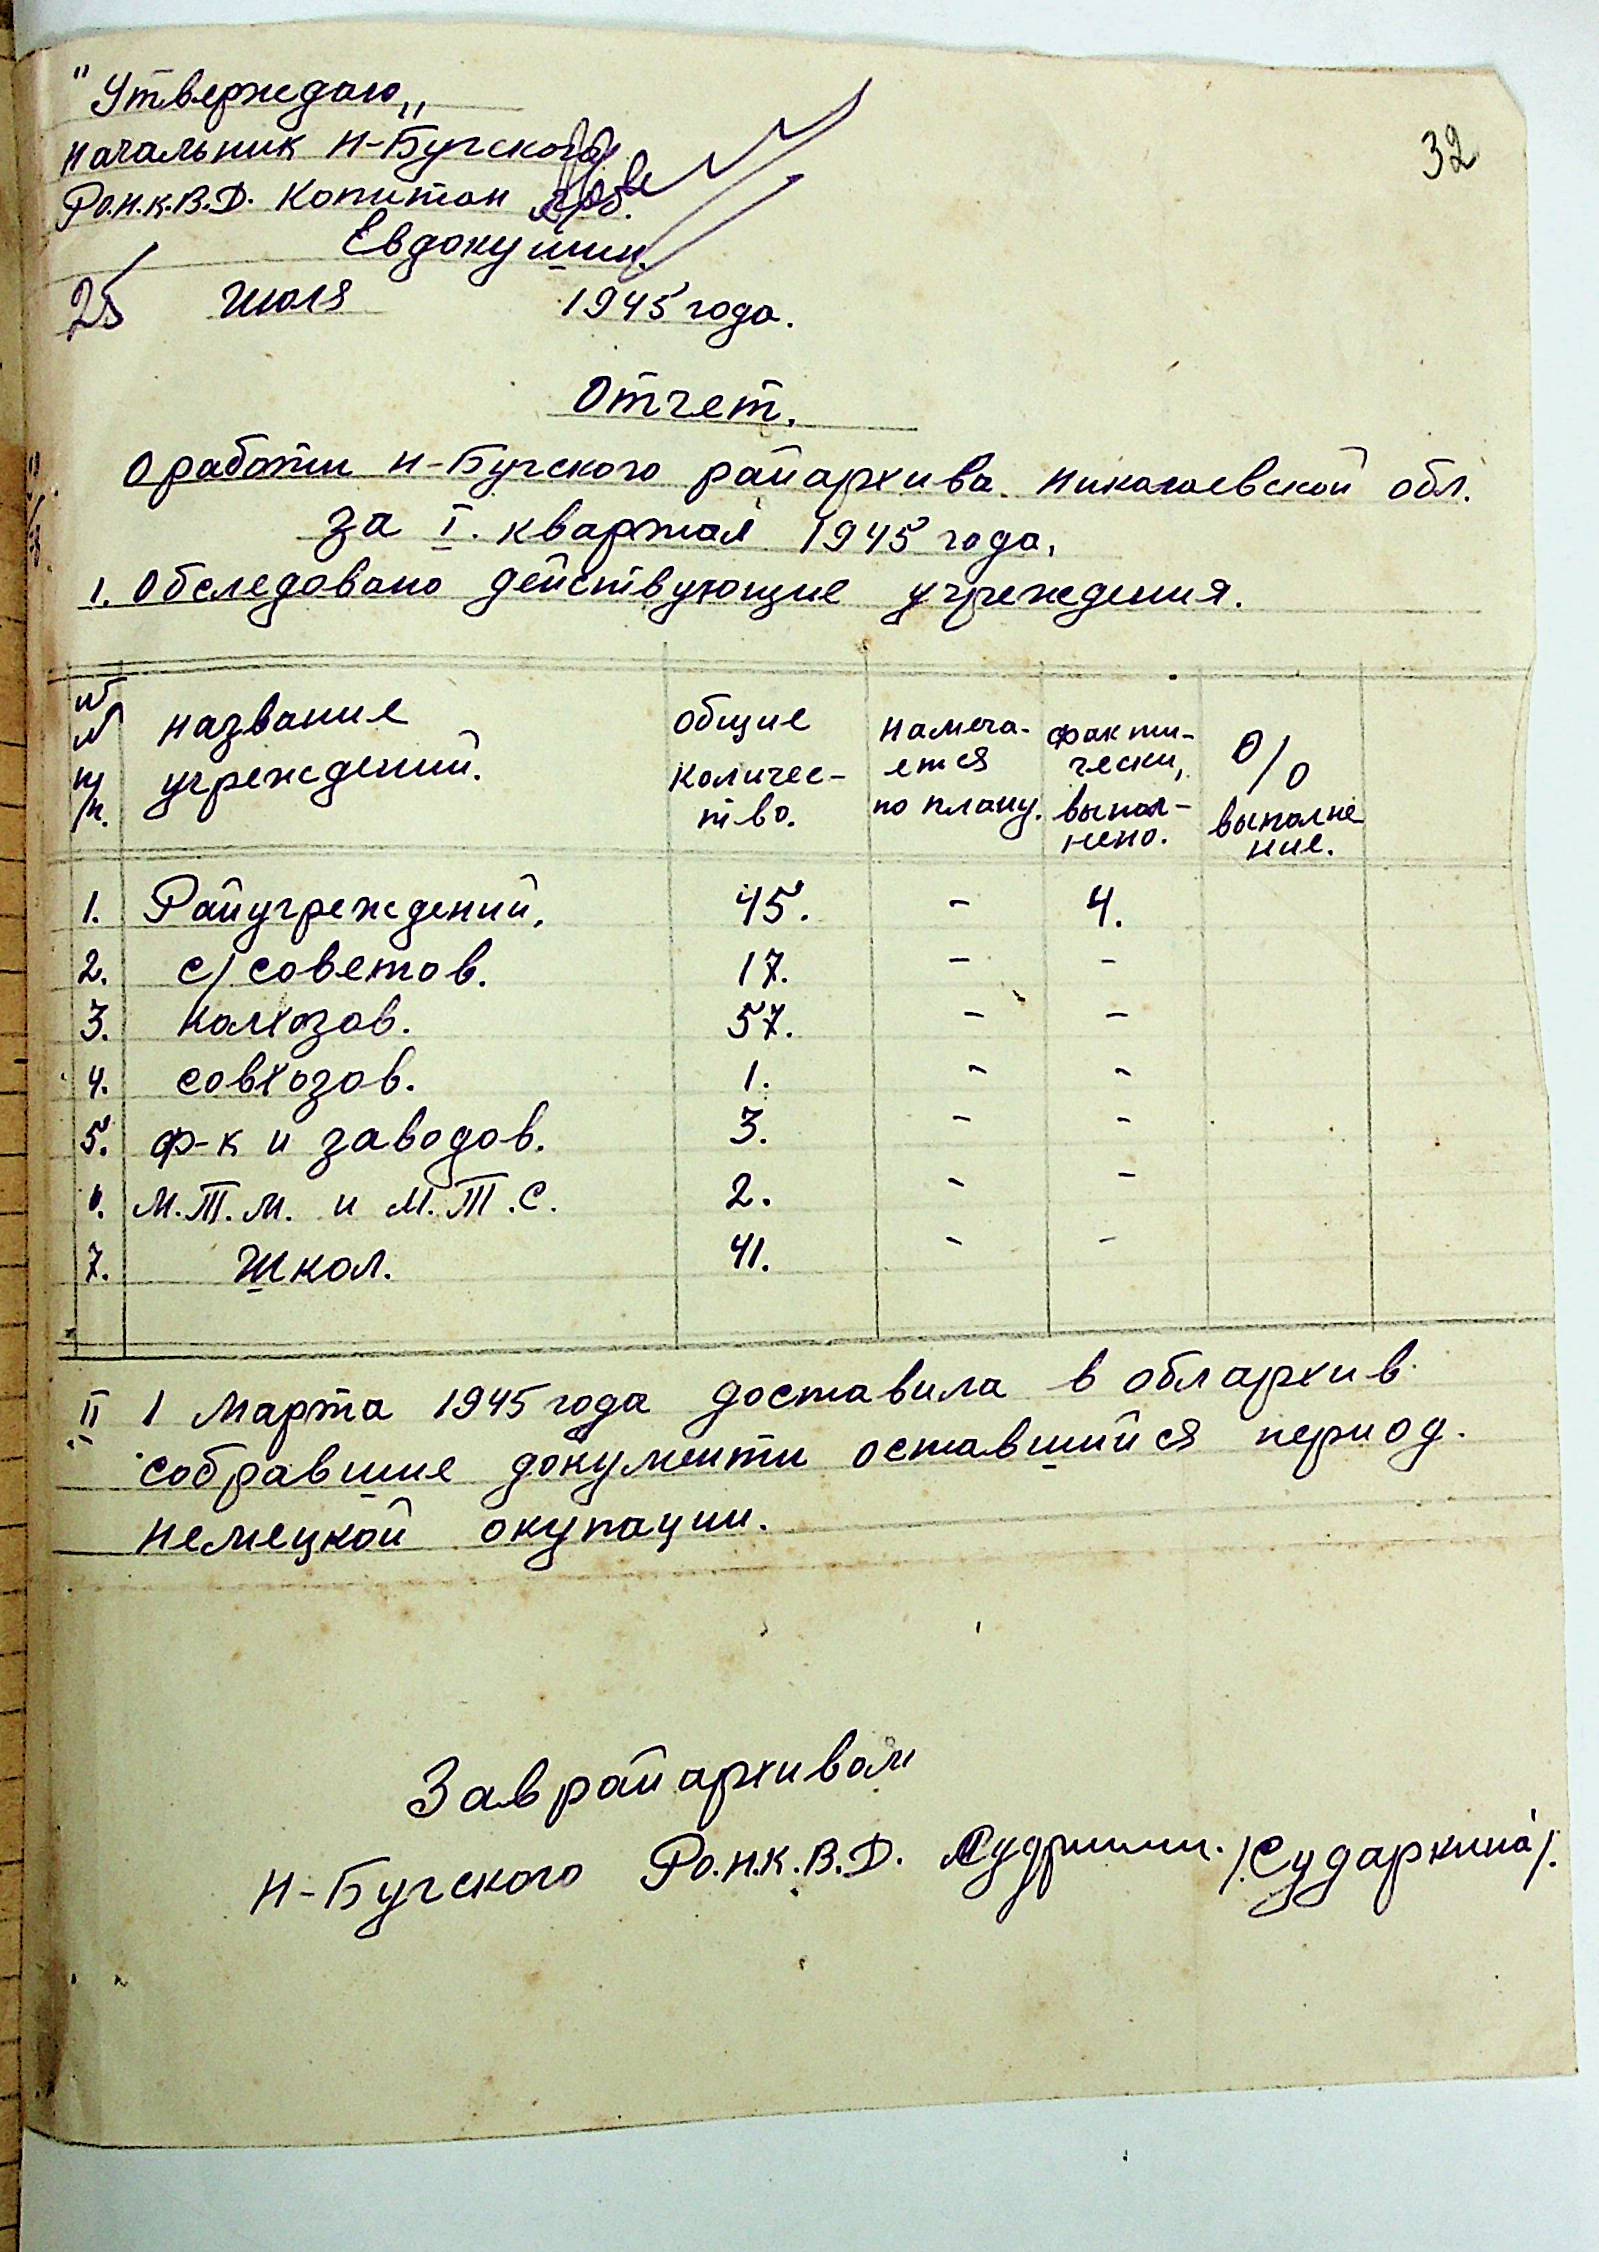 32
"Утверждаю"
Начальник Н-Бугского
Ро.Н.К.В.Д. Копитан
Евдокушин.
25 Июля 1945 года.
Отчет.
О работи Н-Бугского райархива Николаевской обл.
за I. квартал 1945 года.
1. Обследовано действующие учреждения.
№ № п/п. | Название учреждений. | Общие количество. | Намечается по плану. | Фактически, выполнено. | % выполнение.
1. Райучреждений. 45. - 4.
2. с/советов. 17. - -
3. Колхозов. 57. - -
4. Совхозов. 1. - -
5. ф-к и заводов. 3. - -
6. М.Т.М. и М.Т.С. 2. - -
7. Школ. 41. - -
II 1 Марта 1945 года доставила в облархив
собравшие документи оставшийся период.
немецкой окупации.
Заврайархивом
Н-Бугского Ро.Н.К.В.Д. /Сударкина/.